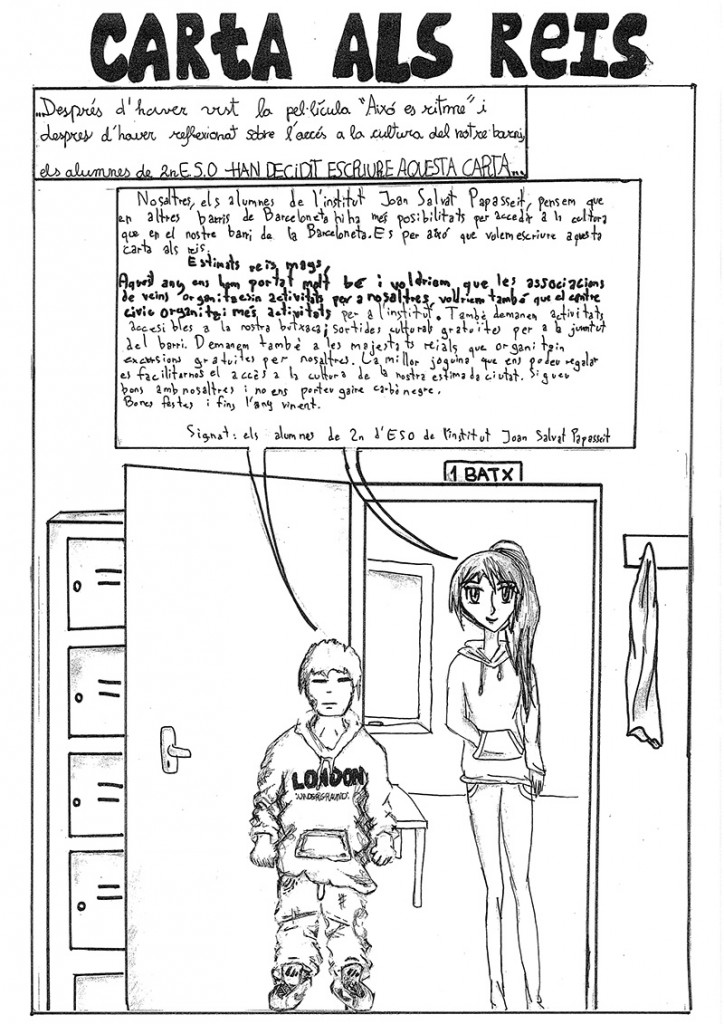 CARTA ALS REIS
...Després d'haver vist la pel·lícula "Això es ritme" i
despres d'haver reflexionat sobre l'accés a la cultura del nostre barri,
els alumnes de 2n E.S.O HAN DECIDIT ESCRIURE AQUESTA CARTA...
Nosaltres, els alumnes de l'institut Joan Salvat Papasseit, pensem que
en altres barris de Barceloneta hi ha més posibilitats per accedir a la cultura
que en el nostre barri de la Barceloneta. Es per això que volem escriure aquesta
carta als reis.
Estimats reis mags,
Aquest any ens hem portat molt bé i voldriem que les associacions
de veins organitzesin activitats per a nosaltres, voldriem també que el centre
civic organitzi més activitats per a l'institut. També demanem activitats
accesibles a la nostra butxaca i sortides culturals gratuïtes per a la juventut
del barri. Demanem també a les majestats reials que organitzin
excursions gratuites per nosaltres. La millor joguina que ens podeu regalar
es facilitarnos el accàs a la cultura de la nostra estimada ciutat. Sigueu
bons amb nosaltres i no ens porteu gaire carbó negre.
Bones festes i fins l'any vinent.
Signat: els alumnes de 2n d'ESO de l'institut Joan Salvat Papasseit
1 BATX
LONDON
UNDERGROUND